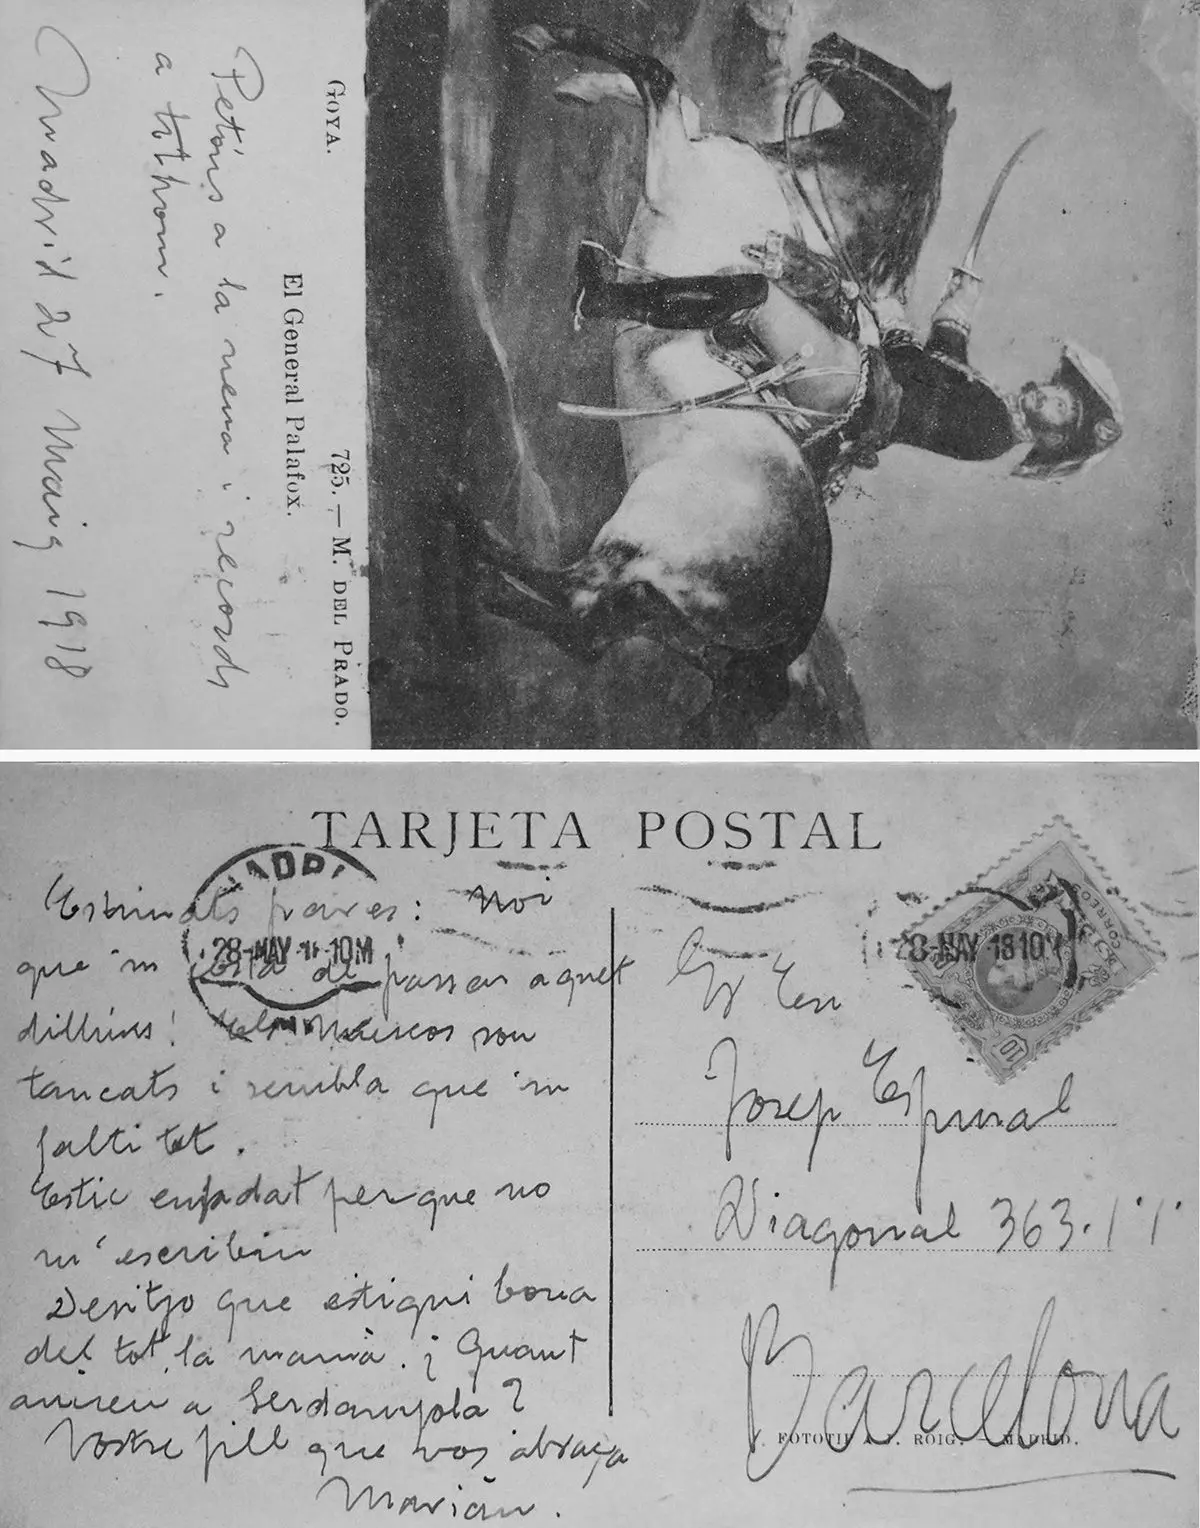 GOYA.
725. — M. DEL PRADO.
El General Palafox.
Petóns a la nena i records
a tothom.
Madrid 27 Maig 1918
TARJETA POSTAL
28-MAY 18 10M
CORREOS
10
Estimats pares: Noi
que 'm costa de passar aquet
dilluns! Els Museos son
tancats i sembla que 'm
falti tot.
Estic enfadat perque no
m'escribiu
Desitjo que estigui bona
del tot la mamà. ¿Quant
anireu a Serdanyola?
Vostre fill que vos abraça
Marián.
En
Josep Espinal
Diagonal 363. 1 1
Barcelona
FOTOTIPIA J. ROIG. — MADRID.